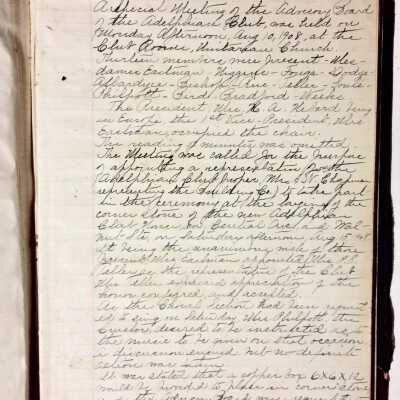 A Special Meeting of the Advisory Board
of the Adelphian Club, was held on
Monday Afternoon, Aug 10, 1908, at the
Club Rooms, Unitarian Church
Thirteen members were present - Mes-
dames Eastman - Higgins - Tonge - Dodge
Allardyce - Bishop - Rue - Teller -
Philpott - Ford Bradford - Weeks.
The President Mrs A Hebard being
in Europe the 1st Vice-President, Mrs
Eastman, occupied the chair.
The reading of minutes was omitted.
The Meeting was called for the purpose
of appointing a representative for the
Adelphian Club proper, Mrs
representing the Building Co) to take part
in the ceremony at the laying of the
corner stone of the new Adelphian
Club House, on Central Ave and Wal-
nut St, on Saturday afternoon Aug
It being the unanimous wish of those
present Mrs Eastman appointed Mrs
Teller as the representative of the Club
Mrs Teller expressed appreciation of the
honor conferred, and accepted.
As the Choral Section had been request
ed to sing on Saturday Mrs Philpott, the
Curator, desired to be instructed as to
the music to be given on that occasion
a discussion ensued but no definite
action was taken
It was stated that a copper box 6x6x12
would be provided to place in corner stone